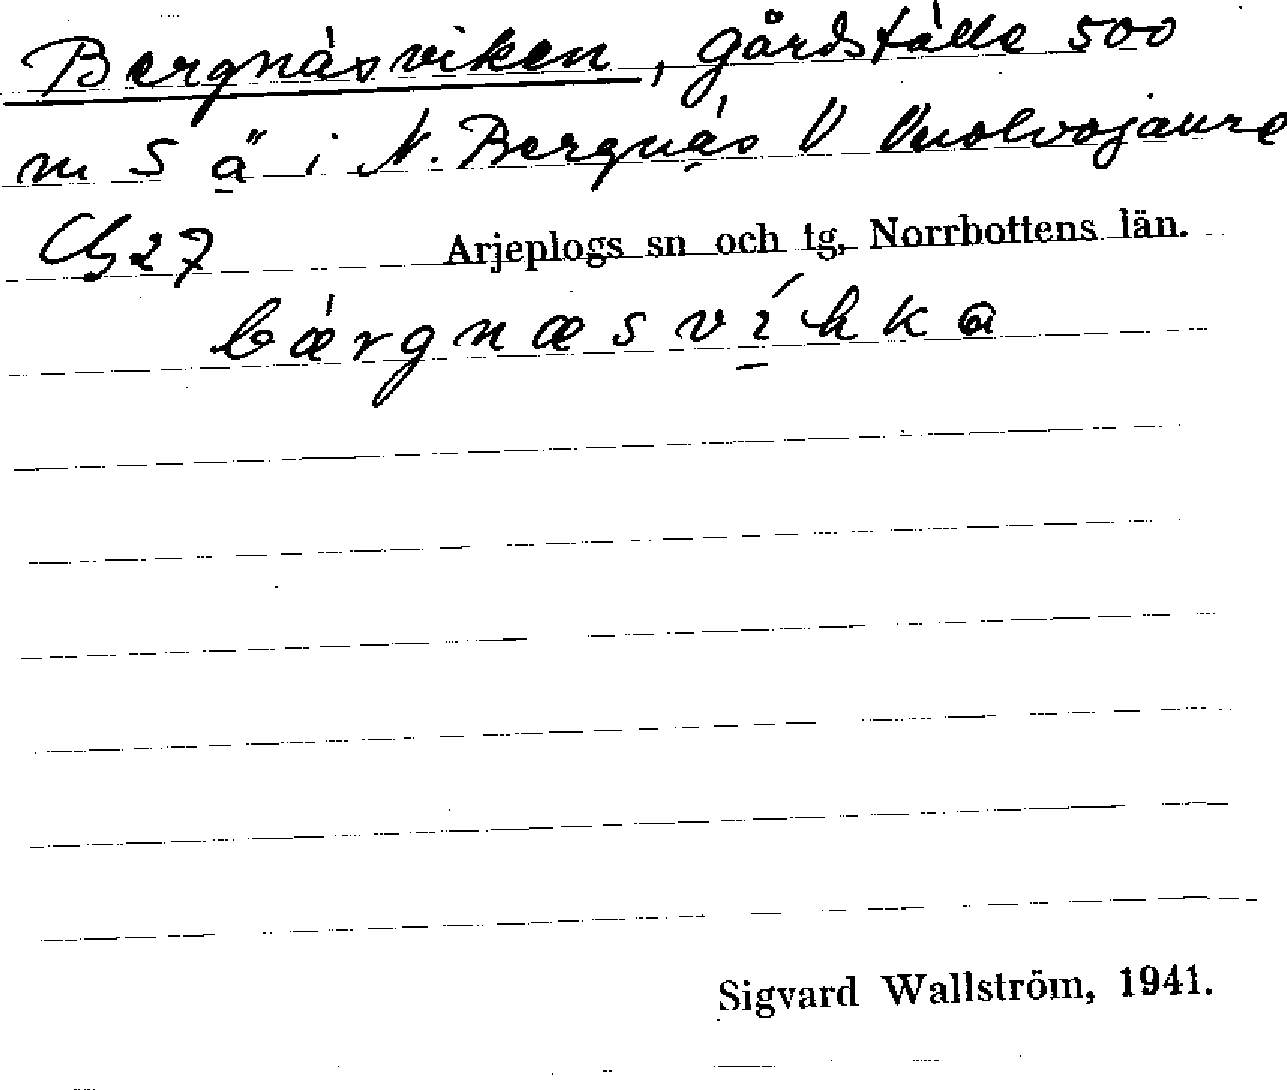 Bergnäsviken, gårdställe 500
m S ä i N. Bergnäs V Vuolvojaure
Cb 27 Arjeplogs sn och tg, Norrbottens län.
bǽrgnæsvíkka
Sigvard Wallström, 1941.